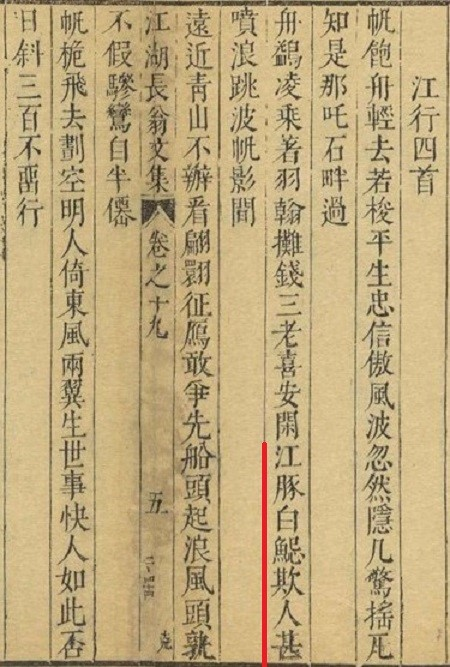 江行四首
帆飽舟輕去若梭平生忠信傲風波忽然隱几驚搖兀
知是那吒石畔過
舟鷁凌乘著羽翰攤錢三老喜安閑江豚白鯢欺人甚
噴浪跳波帆影間
遠近青山不辦看翩翾征鴈敢爭先船頭起浪風頭熟
江湖長翁文集 卷之十九 五
不假驂鸞自半僊
帆桅飛去劃空明人倚東風兩翼生世事快人如此否
日斜三百不畱行